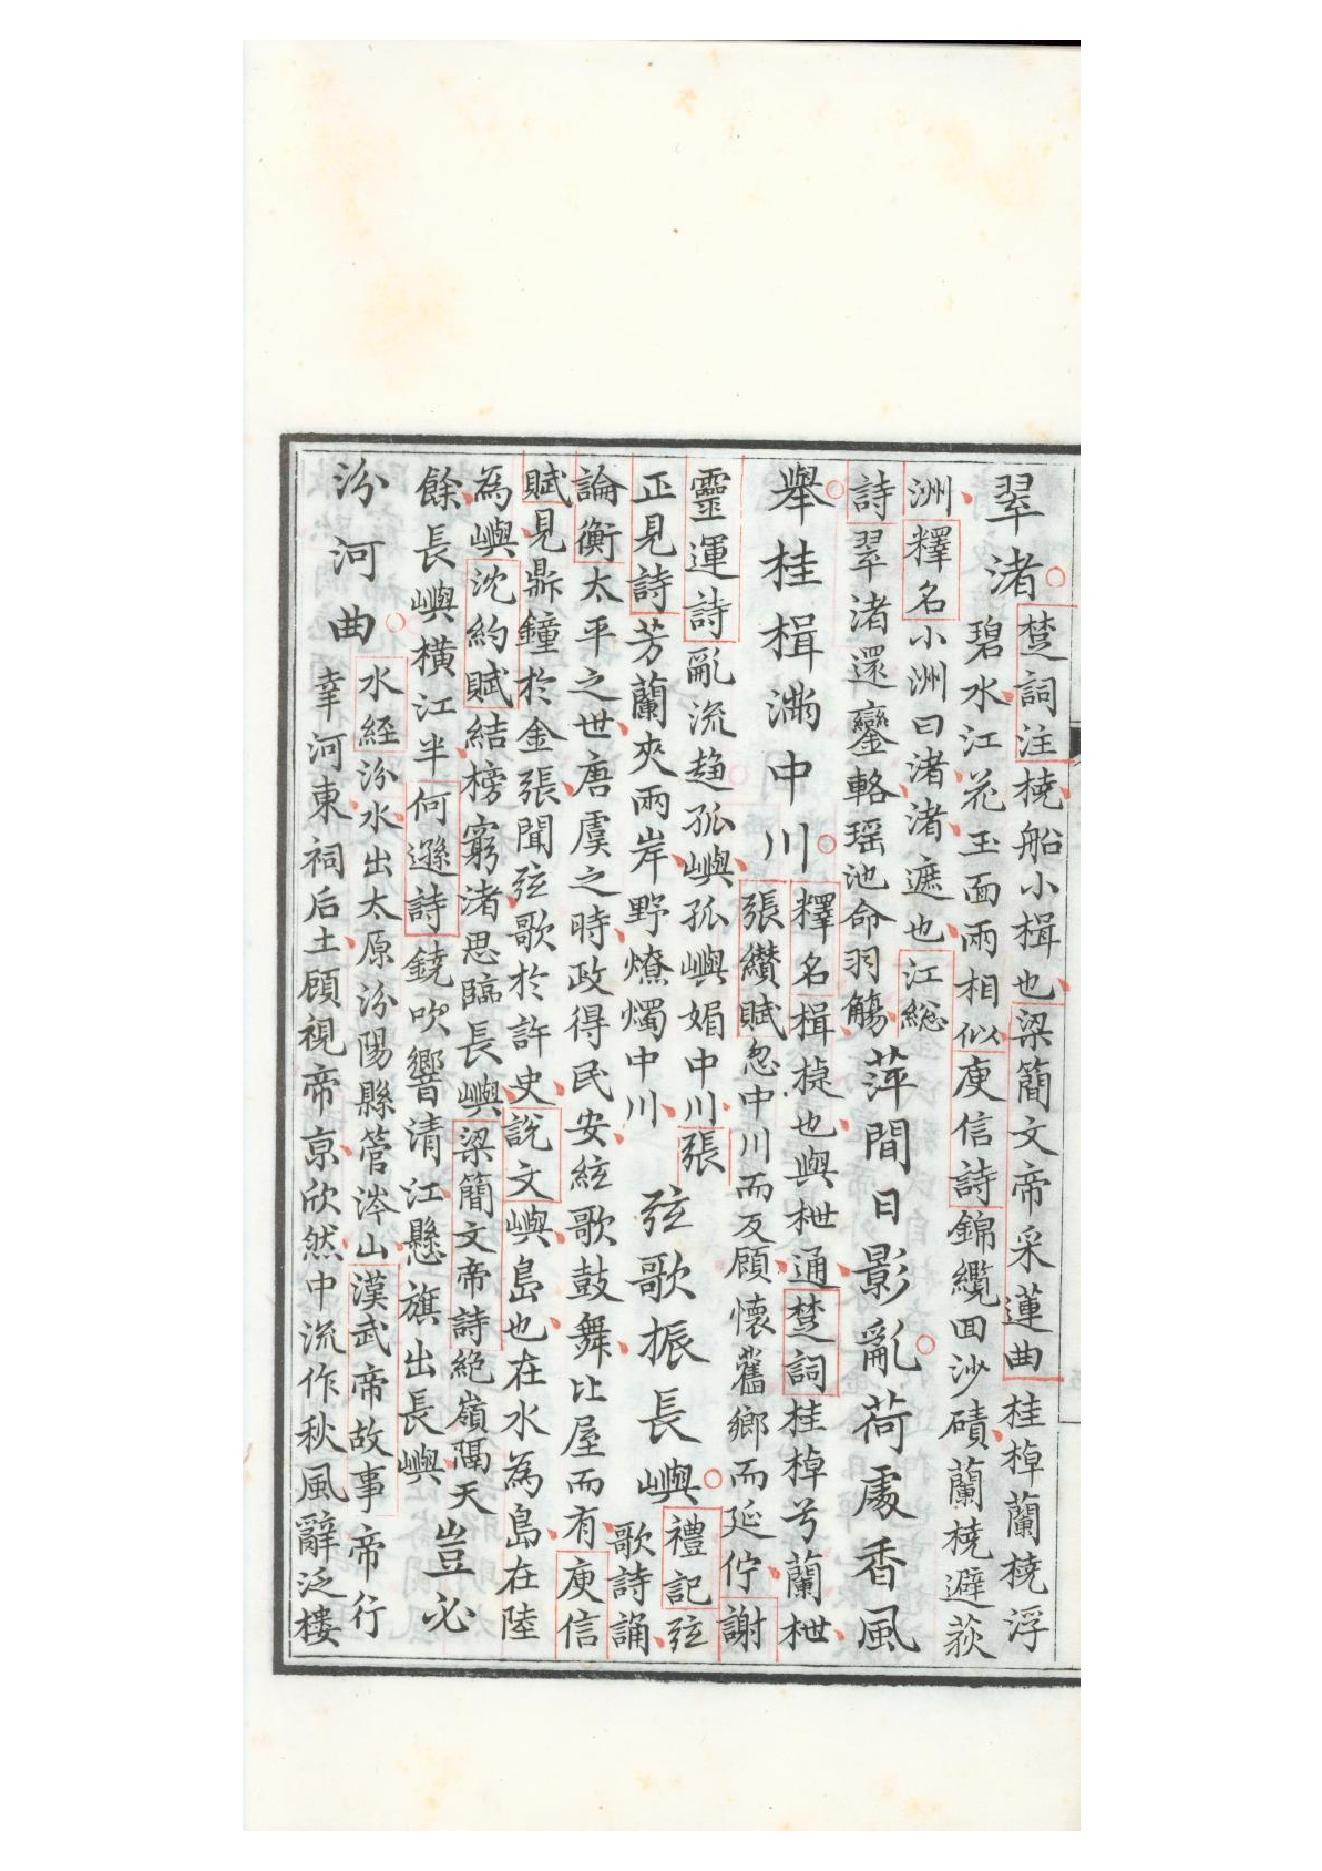 翠渚
楚詞注橈船小楫也梁簡文帝采蓮曲桂棹蘭橈浮
碧水江花玉面兩相似庾信詩錦纜回沙磧蘭橈避荻
洲釋名小洲曰渚渚遮也江総
詩翠渚還鑾輅瑶池命羽觴
萍間日影亂荷處香風
舉桂楫滿中川
釋名楫㨗也與枻通楚詞桂棹兮蘭枻
張纘賦忽中川而反顧懷舊鄉而延佇謝
靈運詩亂流趋孤嶼孤嶼媚中川張
正見詩芳蘭夾兩岸野燎燭中川
弦歌振長嶼
禮記弦
歌詩誦
論衡太平之世唐虞之時政得民安絃歌鼓舞比屋而有庾信
賦見鼎鐘於金張聞弦歌於許史說文嶼島也在水為島在陸
為嶼沈約賦結榜窮渚思臨長嶼梁簡文帝詩絕嶺隔天
餘長嶼橫江半何遜詩鐃吹響清江懸旗出長嶼
豈必
汾河曲
水經汾水出太原汾陽縣管涔山漢武帝故事帝行
幸河東祠后土顧視帝京欣然中流作秋風辭泛樓